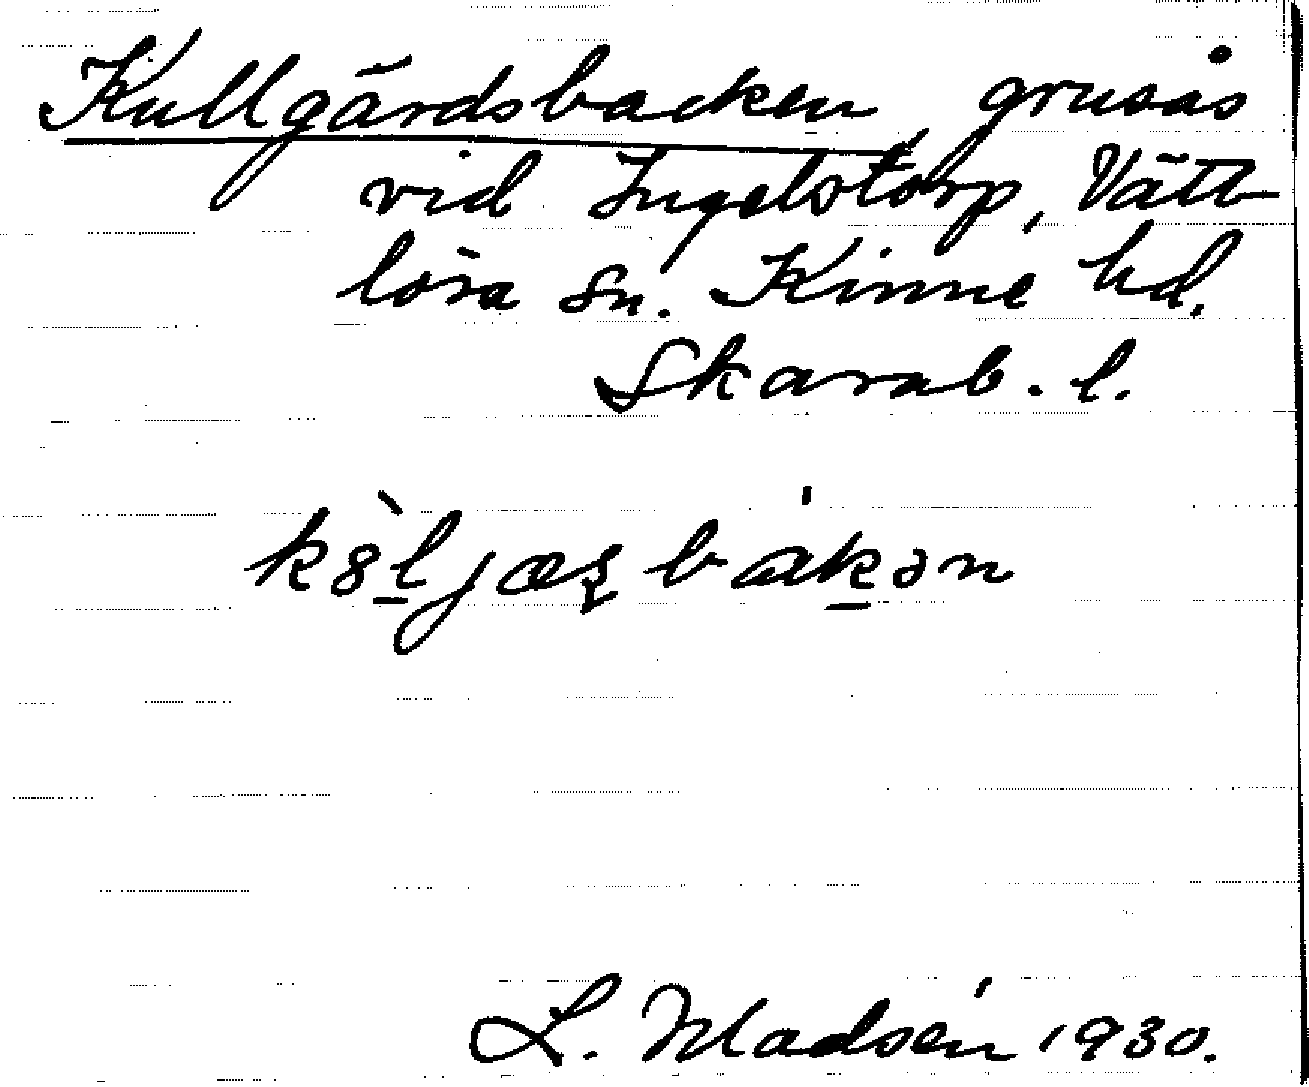 Kullgärdsbacken grusås
vid Ingelstorp, Vätt-
lösa sn. Kinne hd.
Skarab. l.
L. Madsén 1930.